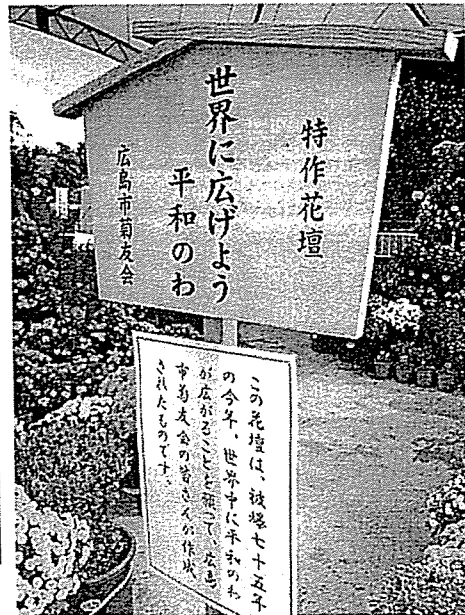 特作花壇
世界に広げよう
平和のわ
広島市菊友会
この花壇は、被爆七十五年
の今年、世界中に平和のわ
が広がることを願って、広島
市菊友会の皆さんが作成
されたものです。